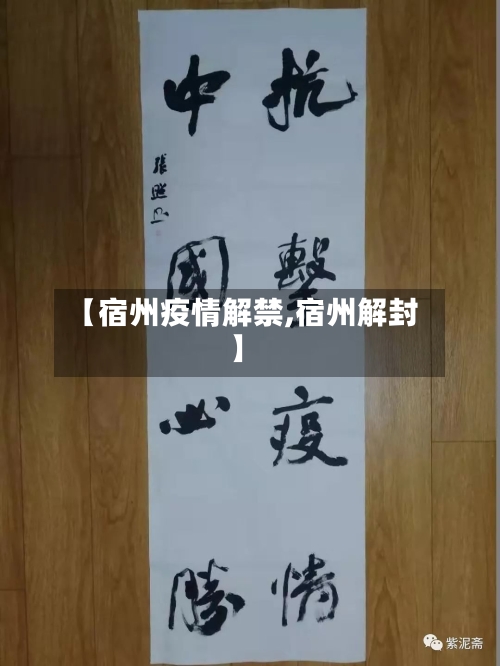 抗擊疫情
中國必勝
張
【宿州疫情解禁,宿州解封
】
紫泥斋